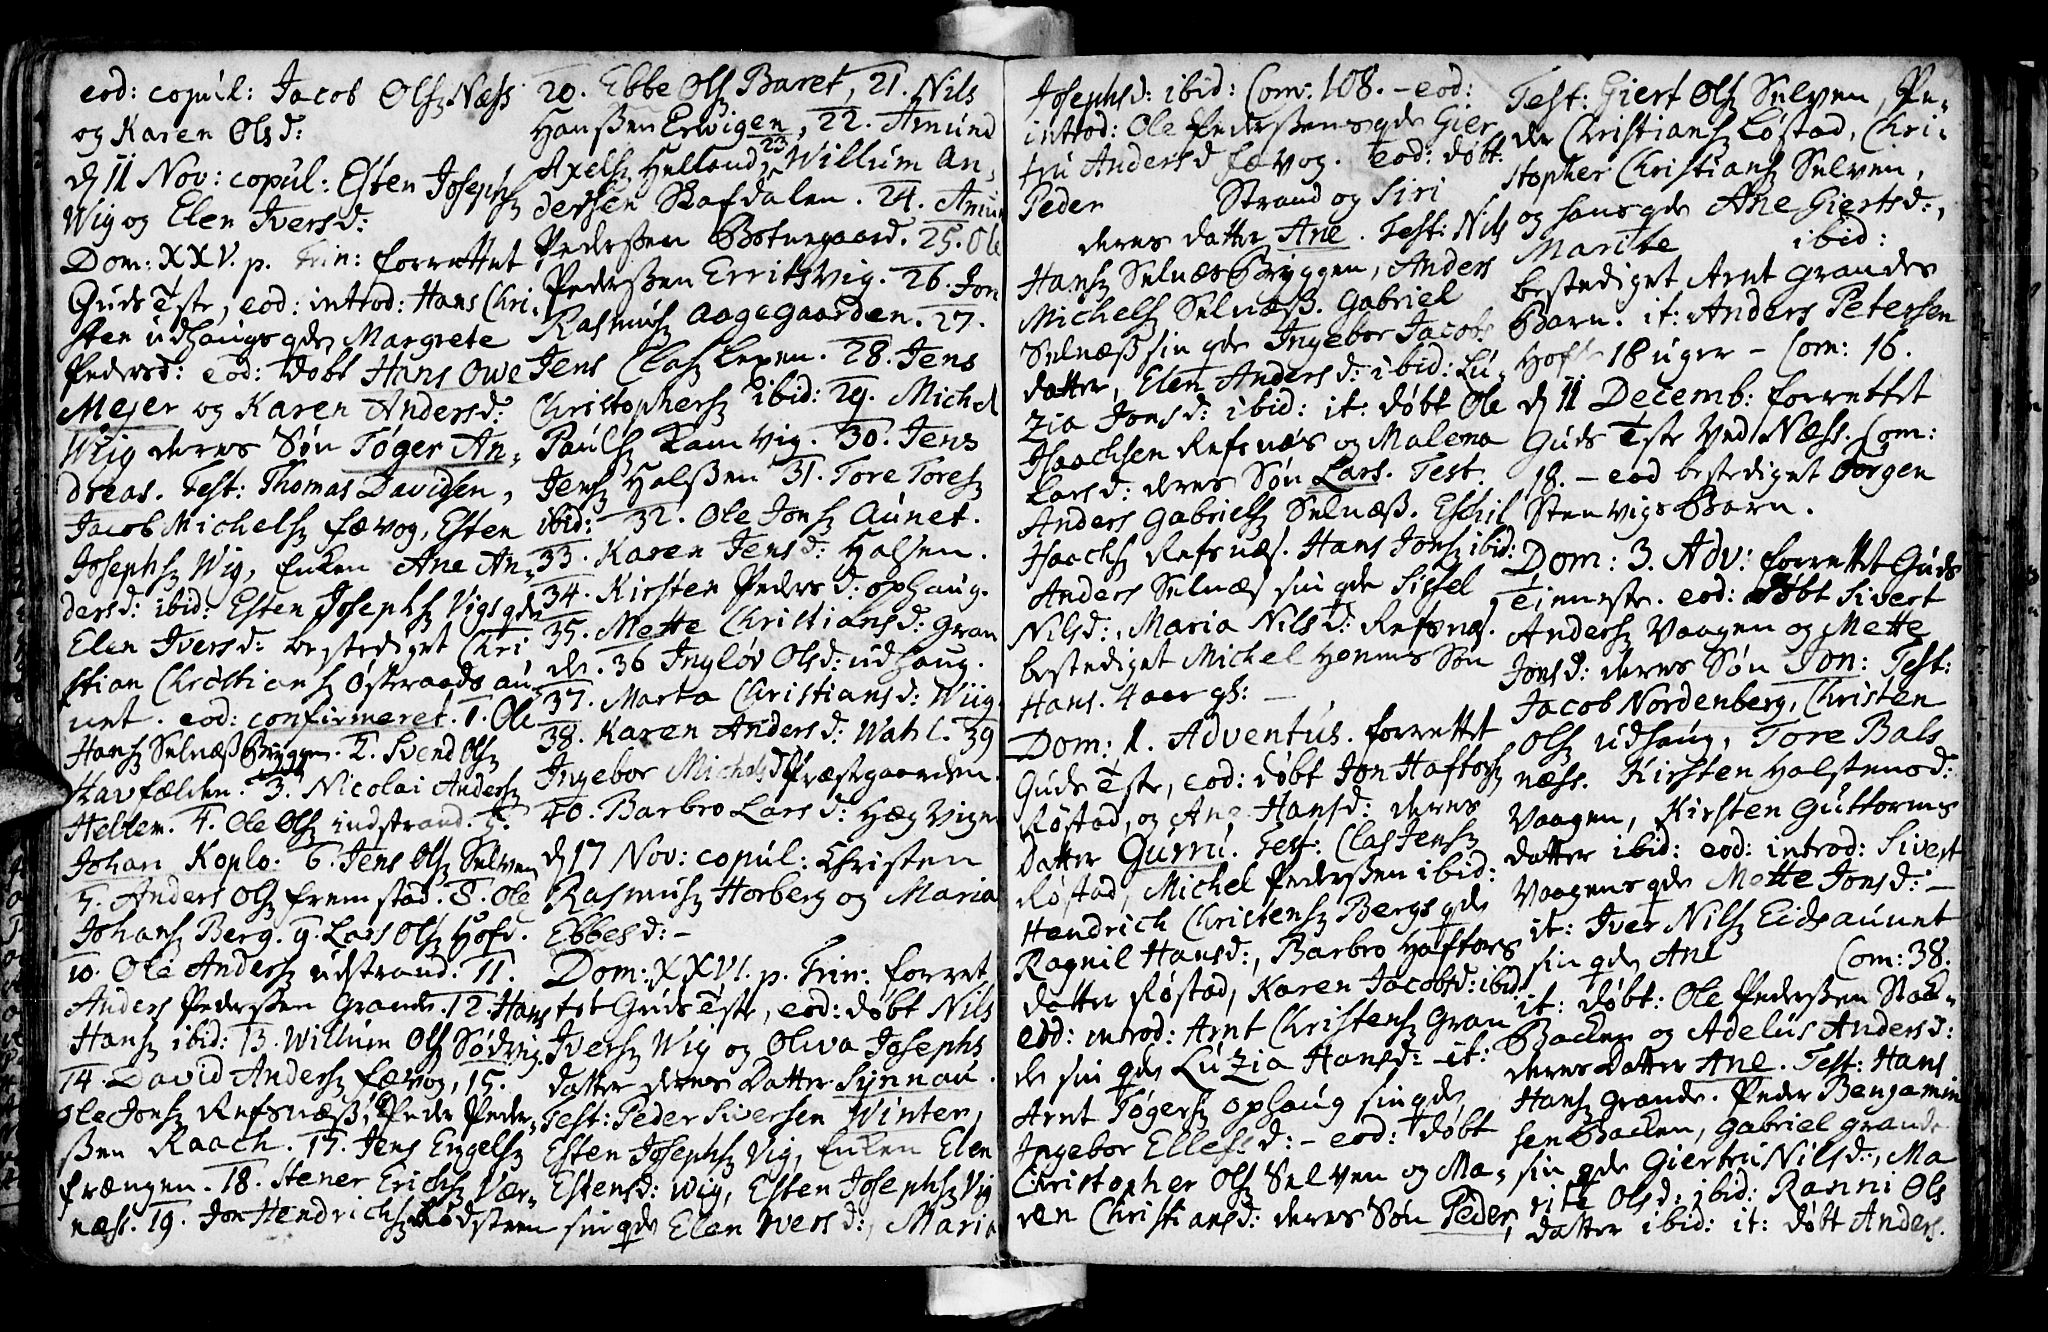 eod: copul: Jacob Olsz Næss
og Karen Olsd:
d 11 Nov: copul: Esten Josephsz
Wig og Elen Iversd:
Dom: XXV. p. Trin: forrettet
Guds Tste, eod: introd: Hans Chri-
sten udhaugs qde Margrete
Pedersd: eod: døbt Hans Owe
Mejer og Karen Andersd:
Wiig deres Søn Tøger An-
dreas. Test: Thomas Davidsen,
Jacob Michelsz fævog, Esten
Josephsz Wig, Enken Ane An-
dersd: ibid: Esten Josephsz Vigs qde
Elen Iversd: bestediget Chri
stian Christiansz Østeraads au
unt. eod: confirmeret. 1. Ole
Hansz Selnæss Bryggen. 2. Svend Olsz
Havfælden. 3. Nicolai Andersz
Hellem. 4. Ole Olsz indstrand. 5.
Johan Koplo. 6. Jens Olsz Selven
7. Anders Olsz fremstad. 8. Ole
Johansz Berg. 9. Lars Olsz Hofd.
10. Ole Andersz udstrand. 11.
Anders Pederssen Grande. 12. Hans
Hansz ibid: 13. Willum Olsz Sødvig.
14. David Andersz fævog, 15.
Ole Jonsz Refsnæss, Peder Peder-
ssen Raach. 17. Jens Engelsz
frængen. 18. Stener Erichsz Vær-
næss. 19. Jon Hendrichsz Rødsteen
20. Ebbe Olsz Baret, 21. Nils
Hanssen Erwigen, 22. Amund
Axelsz Helland, 23 Willum An-
dersen Skafdalen. 24. Amun
Pederssen Botnegaard. 25. Ole
Pederssen Erritsvig. 26. Jon
Rasmusz Aagegaarden. 27.
Jens Clasz Lexen. 28. Jens
Christophersz ibid: 29. Michel
Paulsz Ramvig. 30. Jens
Jensz Halssen 31. Tore Toresz
ibid: 32. Ole Jonsz Aunet.
33. Karen Jensd: Halsen.
34. Kirsten Pedersd: ophaug.
35. Mette Christiansd: Gran
de. 36 Ingløv Olsd: udhaug.
37. Marta Christiansd: Wiig
38. Karen Andersd: Wahl. 39
Ingebor Michelsd Præstgaarden.
40. Barbro Larsd: Hægvigen
d 17 Nov: copul: Christen
Rasmusz Horberg og Maria
Ebbesd: -
Dom: XXVI. p. Trin: forret
tet Guds Tste, eod: døbt Nils
Iversz Wig og Oliva Josephs
datter deres Datter Synnau.
Test: Peder Siversen Winter,
Esten Josephsz Vig, Enken Elen
Estensd: Wig, Esten Josephsz Vig
sin qde Elen Iversd:, Maria
Josephsd: ibid: Com: 108. - eod:
introd: Ole Pederssens qde Gier
tru Andersd fævog. eod: døbt
Peder Strand og Siri
deres datter Ane. Test: Nils
Hansz Selnæs Bryggen, Anders
Michelsz Selnæss. Gabriel
Selnæss sin qde Ingebor Jacobs
datter, Elen Andersd: ibid: Lu-
zia Jonsd: ibid: it: døbt Ole
Isachsen Refsnæs og Malena
Larsd: deres Søn Lars. Test:
Anders Gabrielsz Selnæss. Eskil
Haachsz Refsnæs. Hans Jonsz ibid:
Anders Selnæs sin qde Sissel
Nilsd:, Maria Nilsd: Refsnæs.
bestediget Michel Henms Søn
Hans. 4 aar gl: -
Dom: 1. Adventus. forrettet
Guds Tste, eod: døbt Jon Haftorsz
Røstad, og Ane Hansd: deres
Datter Gurru. Test: Clas Jensz
Røstad, Michel Pederssen ibid:
Hendrich Christensz Bergs qde
Ragnil Hansd:, Barbro Haftors
datter Røstad, Karen Jacobsd: ibid
eod: introd: Arnt Christensz Gran
de sin qde Luzia Hansd: - it:
Arnt Tøgersz ophaug sin qde
Ingebor Ellefsd: - eod: døbt
Christopher Olsz Selven og Ma-
ren Christiansd: deres Søn Peder,
Test: Giert Olsz Selven, Pe-
der Christiansz Løstad, Chri-
stopher Christiansz Selven,
og hans qde Ane Giertsd:,
Marite ibid:
bestediget Arnt Grandes
Barn. it: Anders Petersen
18 uger - Com: 16.
d 11 Decemb: forrettet
Guds Tste Ved Næss. Com:
18. - eod bestediget Jørgen
Stenvigs Barn.
Dom: 3. Adv: forrettet Guds
Tienneste. eod: døbt Sivert
Andersz Vaagen og Mette
Jonsd: deres Søn Jon: Test:
Jacob Nordenberg, Christen
Olsz udhaug, Tore Bals
næss. Kirsten Halstensd:
Vaagen, Kirsten Guttorms
datter ibid: eod: introd: Sivert
Vaagens qde Mette Jonsd: -
it: Iver Nilsz Eidsaunet
sin qde Ane Com: 38.
it: døbt: Ole Pederssen Stok-
Backen og Adelus Andersd:
deres datter Ane. Test: Hans
Hansz Grande. Peder Benjamin
sen Backen, Gabriel Grande
sin qde Giertru Nilsd:, Ma
rite Olsd: ibid: Ranni Ols
datter ibid: it: døbt Anders.